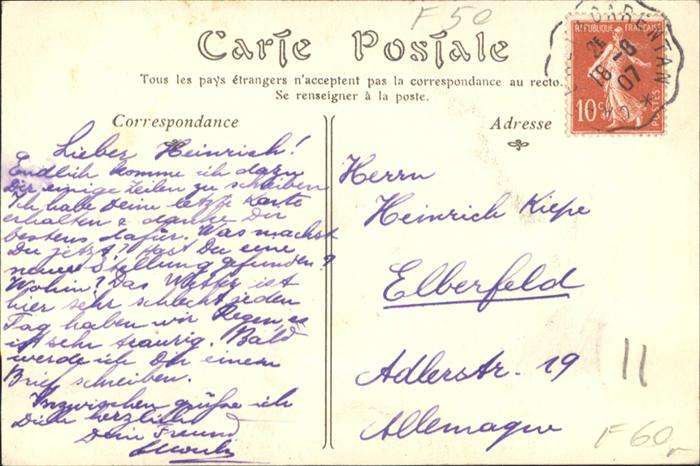 F 50
Carte Postale
Tous les pays étrangers n'acceptent pas la correspondance au recto.
Se renseigner à la poste.
Correspondance
Lieber Heinrich!
Endlich komme ich dazu
Dir einige Zeilen zu schreiben
Ich habe Deine letzte Karte
erhalten & danke Dir
bestens dafür. Was machst
Du jetzt? Hast Du eine
neue Stellung gefunden?
Wohin? Das Wetter ist
hier sehr schlecht jeden
Tag haben wir Regen, es
ist sehr traurig. Bald
werde ich Dir einen
Brief schreiben.
Inzwischen grüße ich
Dich herzlichst
Dein Freund
Adresse
Herrn
Heinrich Kiepe
Elberfeld
Adlerstr. 19
Allemagne
11
F 60
CARENTAN
18-8
07
REPUBLIQUE FRANÇAISE
10
POSTES